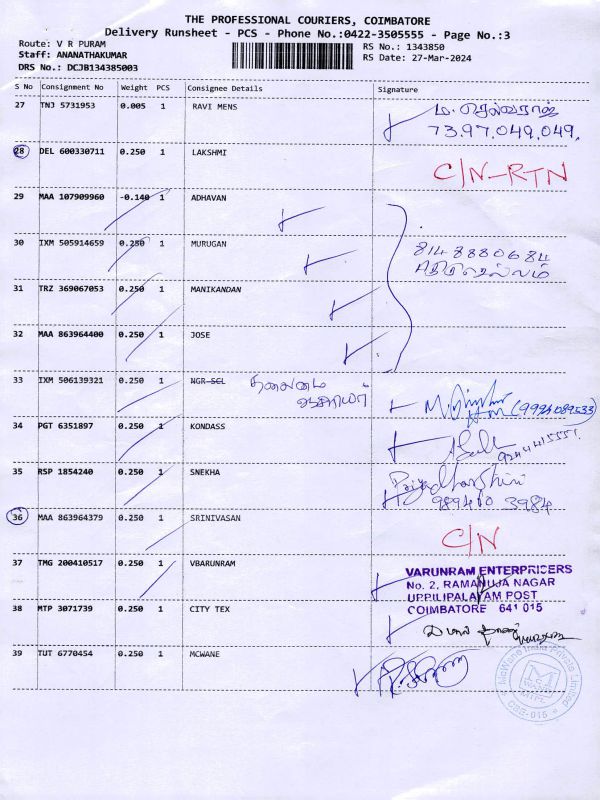 THE PROFESSIONAL COURIERS, COIMBATORE
Delivery Runsheet - PCS - Phone No.:0422-3505555 - Page No.:3
Route: V R PURAM
Staff: ANANATHAKUMAR
DRS No.: DCJB134385003
RS No.: 1343850
RS Date: 27-Mar-2024
S No Consignment No Weight PCS Consignee Details Signature
27 TNJ 5731953 0.005 1 RAVI MENS
ம. செல்வராஜ்
73,97,049,049,
28 DEL 600330711 0.250 1 LAKSHMI C/N-RTN
29 MAA 107909960 -0.140 1 ADHAVAN
30 IXM 505914659 0.250 1 MURUGAN 8148880684
31 TRZ 369067053 0.250 1 MANIKANDAN
32 MAA 863964400 0.250 1 JOSE
33 IXM 506139321 0.250 1 NGR SCL தலைமை
34 PGT 6351897 0.250 1 KONDASS
35 RSP 1854240 0.250 1 SNEKHA Priyadharshini
989410 3984
36 MAA 863964379 0.250 1 SRINIVASAN C/N
37 TMG 200410517 0.250 1 VBARUNRAM
VARUNRAM ENTERPRISERS
No. 2, RAMANUJA NAGAR
UPPILIPALAYAM POST
COIMBATORE 641 015
38 MTP 3071739 0.250 1 CITY TEX
39 TUT 6770454 0.250 1 MCWANE
CBE-015